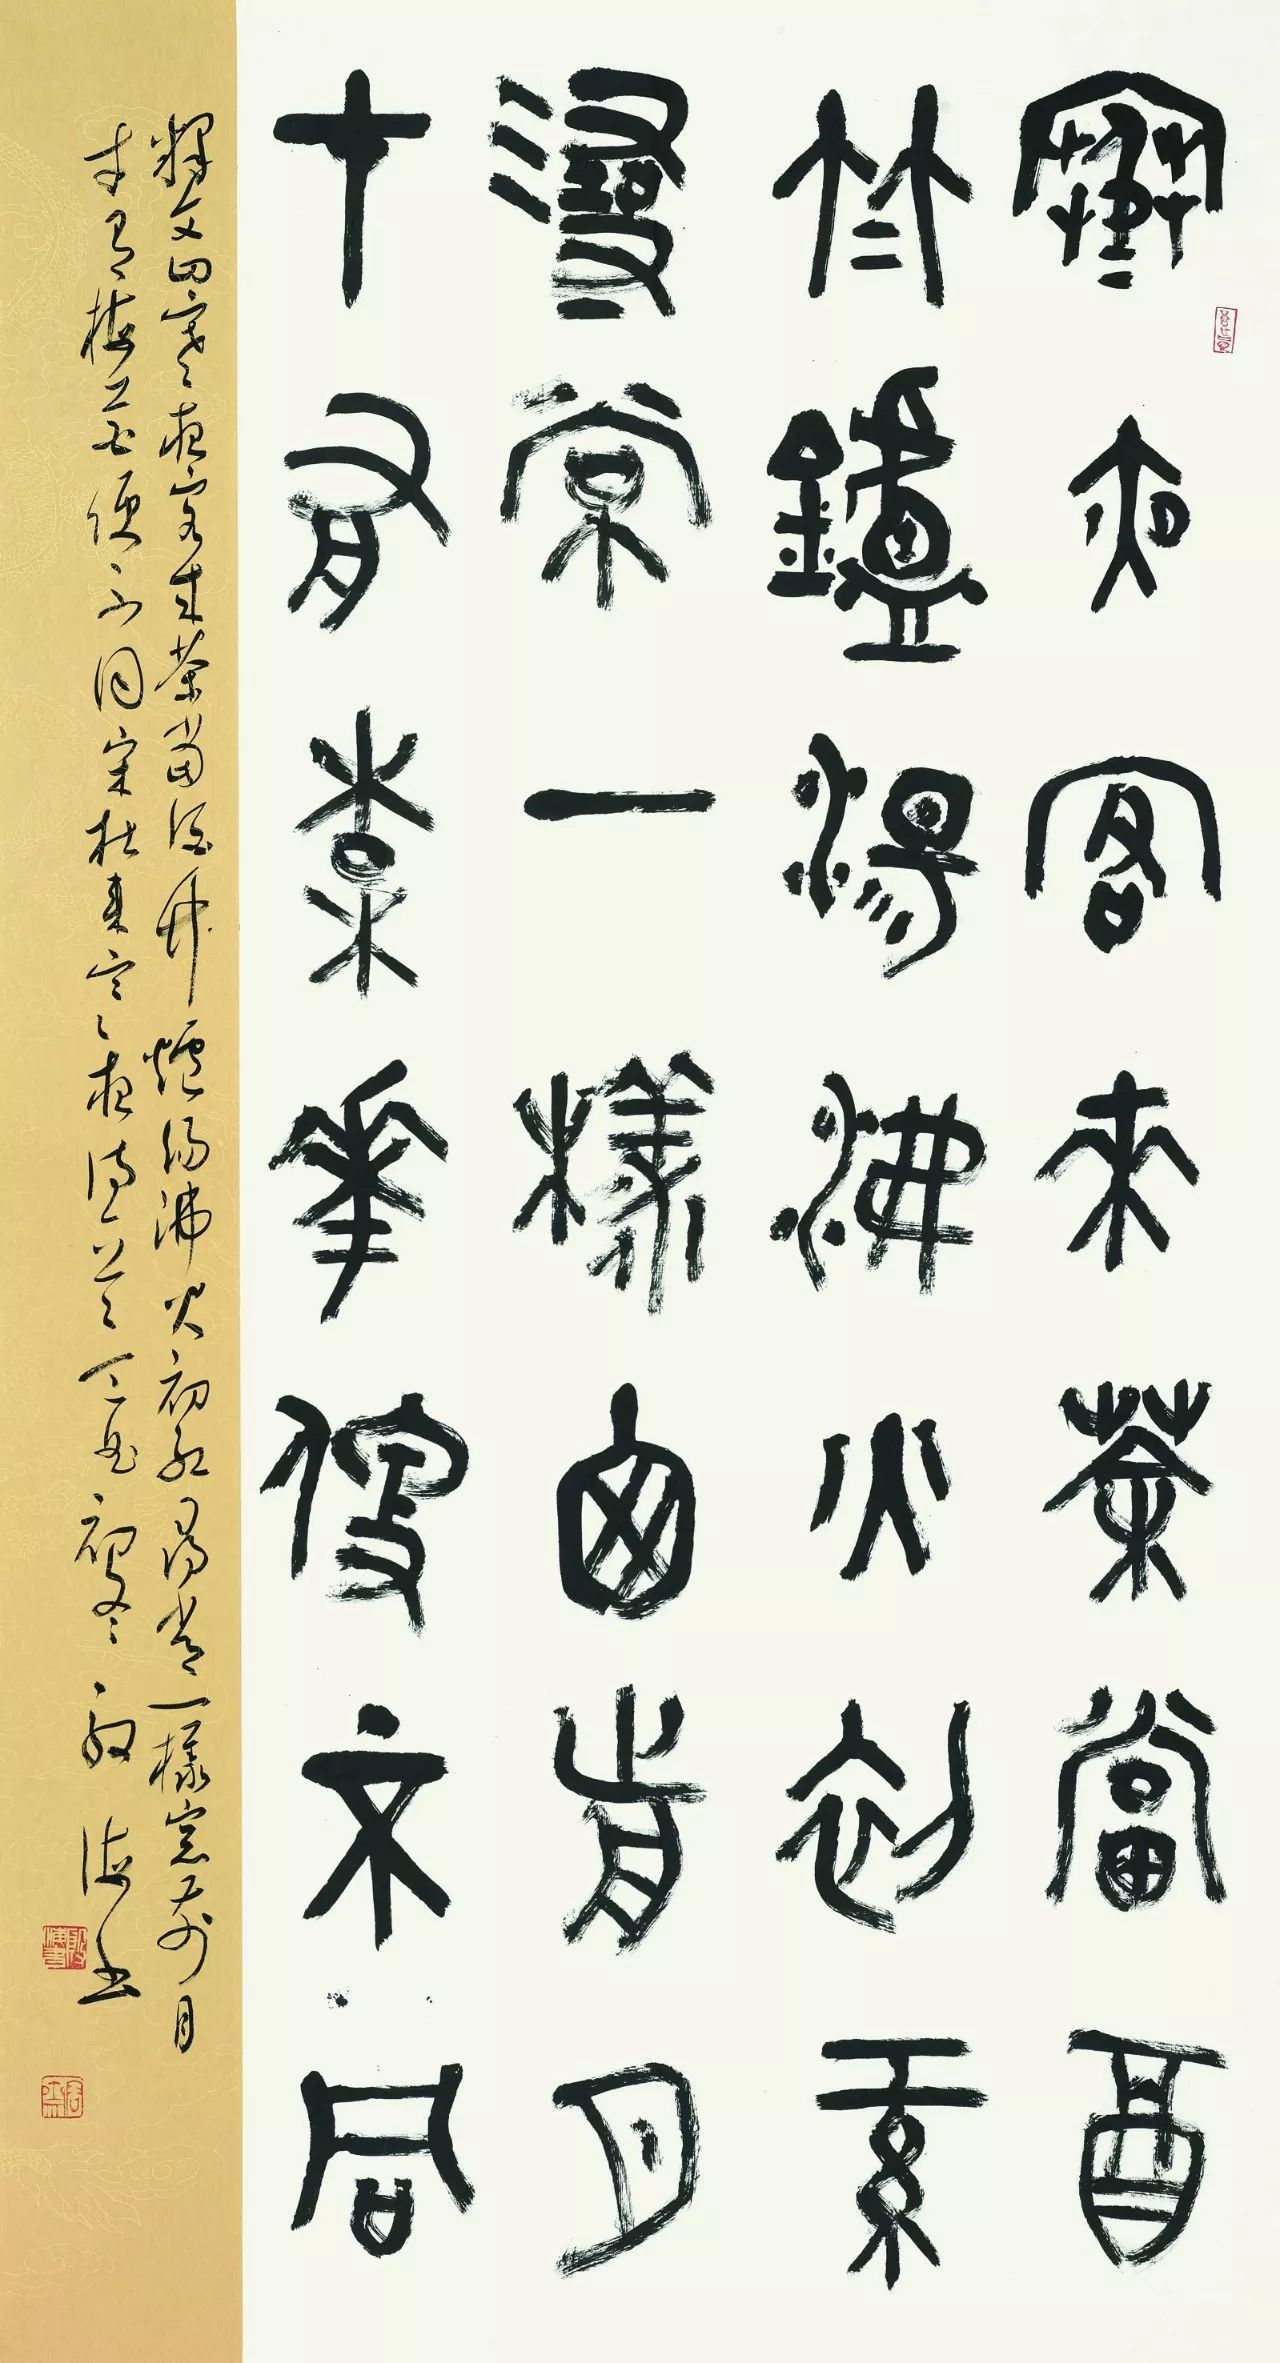 寒夜客來茶當酉
竹鑪湯沸火初紅
尋常一樣囱前月
才有某華便不同
釋文曰寒夜客來茶當酒竹爐湯沸火初紅尋常一樣窗前月
才有梅花便不同宋杜耒寒夜詩初冬海書